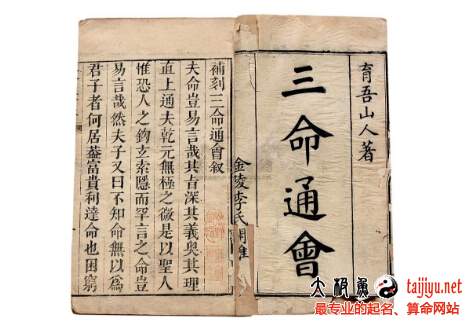 育吾山人著
三命通會
金陵李氏
補刻三命通會叙
夫命豈易言哉其旨深其義奧其理
直上通夫乾元無極之微是以聖人
惟恐人之鉤玄索隱而罕言之命豈
易言哉然夫子又曰不知命無以爲
君子者何居葢富貴利達命也困窮
taijiyu.net
最专业的起名、算命网站